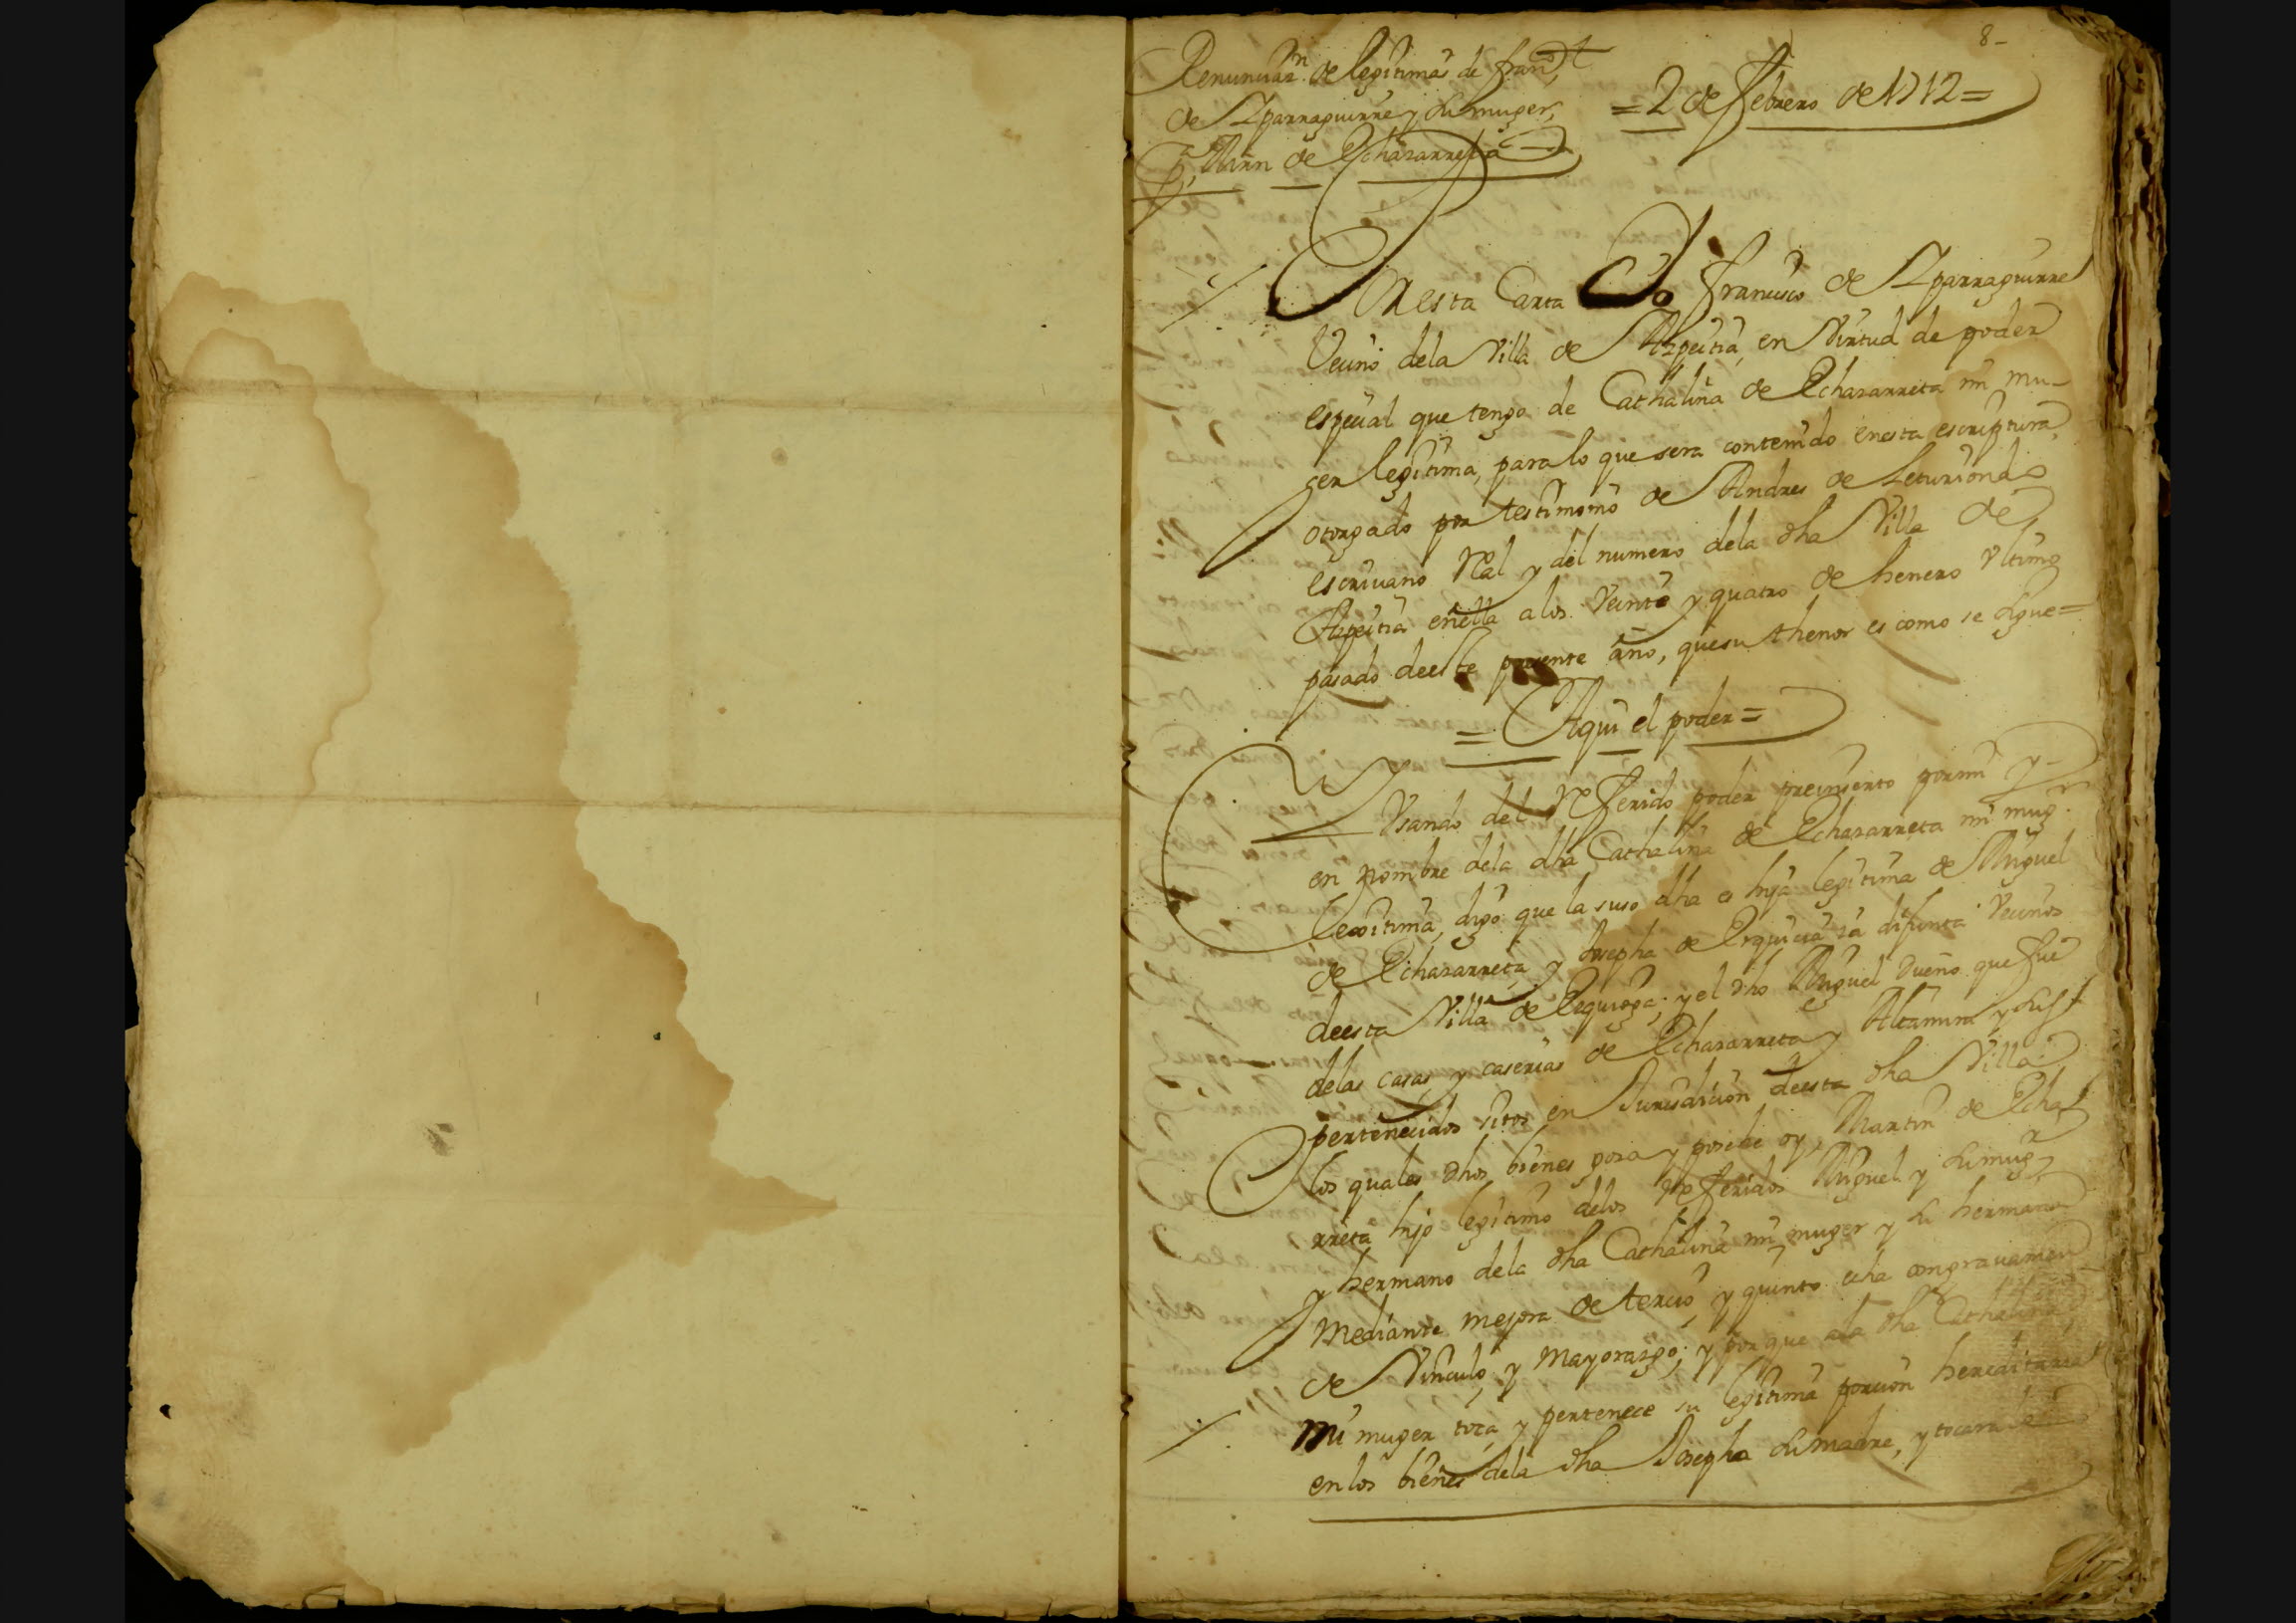 8-
Renunciaz.n de legitimas de fran.co
de Yparraguirre y su muger,
Mrn de Echazarreta
= 2 de febrero de 1712 =
En esta Carta Yo francisco de Yparraguirre
Vecino dela Villa de Azpeitia, en Virtud de poder
especial que tengo de Cathalina de Echazarreta mi mu-
ger legitima, para lo que sera contenido enesta escriptura,
otorgado por testimonio de Andres de Leturiondo
escriuano Rl y del numero dela dha Villa de
Azpeitia enella alos Veinte y quatro de henero Vltimo
pasado deeste presente año, quesu thenor es como se sigue =
= Aqui el poder =
Vsando del Referido poder preinserto pormi y-
en nombre dela dha Cathalina de Echazarreta mi mugr
legitima, digo que la suso dha es hija legitima de Miguel
de Echazarreta, y Josepha de ya difunta Vecinos
deesta Villa de ; y el dho Miguel dueño que fue
delas casas y caserias de Echazarreta y Altamira y sus
pertenecidos sitos en Jurisdicion deesta dha Villa
los quales dhos bienes goza y posehe oy, Martin de Echa
rreta hijo legitimo delos Referidos Miguel y su mugr
y hermano dela dha Cathalina mi muger y su hermana
Mediante mejora de tercio, y quinto echa congrauamen
de Vinculo y Mayorazgo; y por que ala dha Cathalina
mi muger toca y pertenece su legitima porcion hereditaria
enlos bienes dela dha Josepha su madre, y tocara